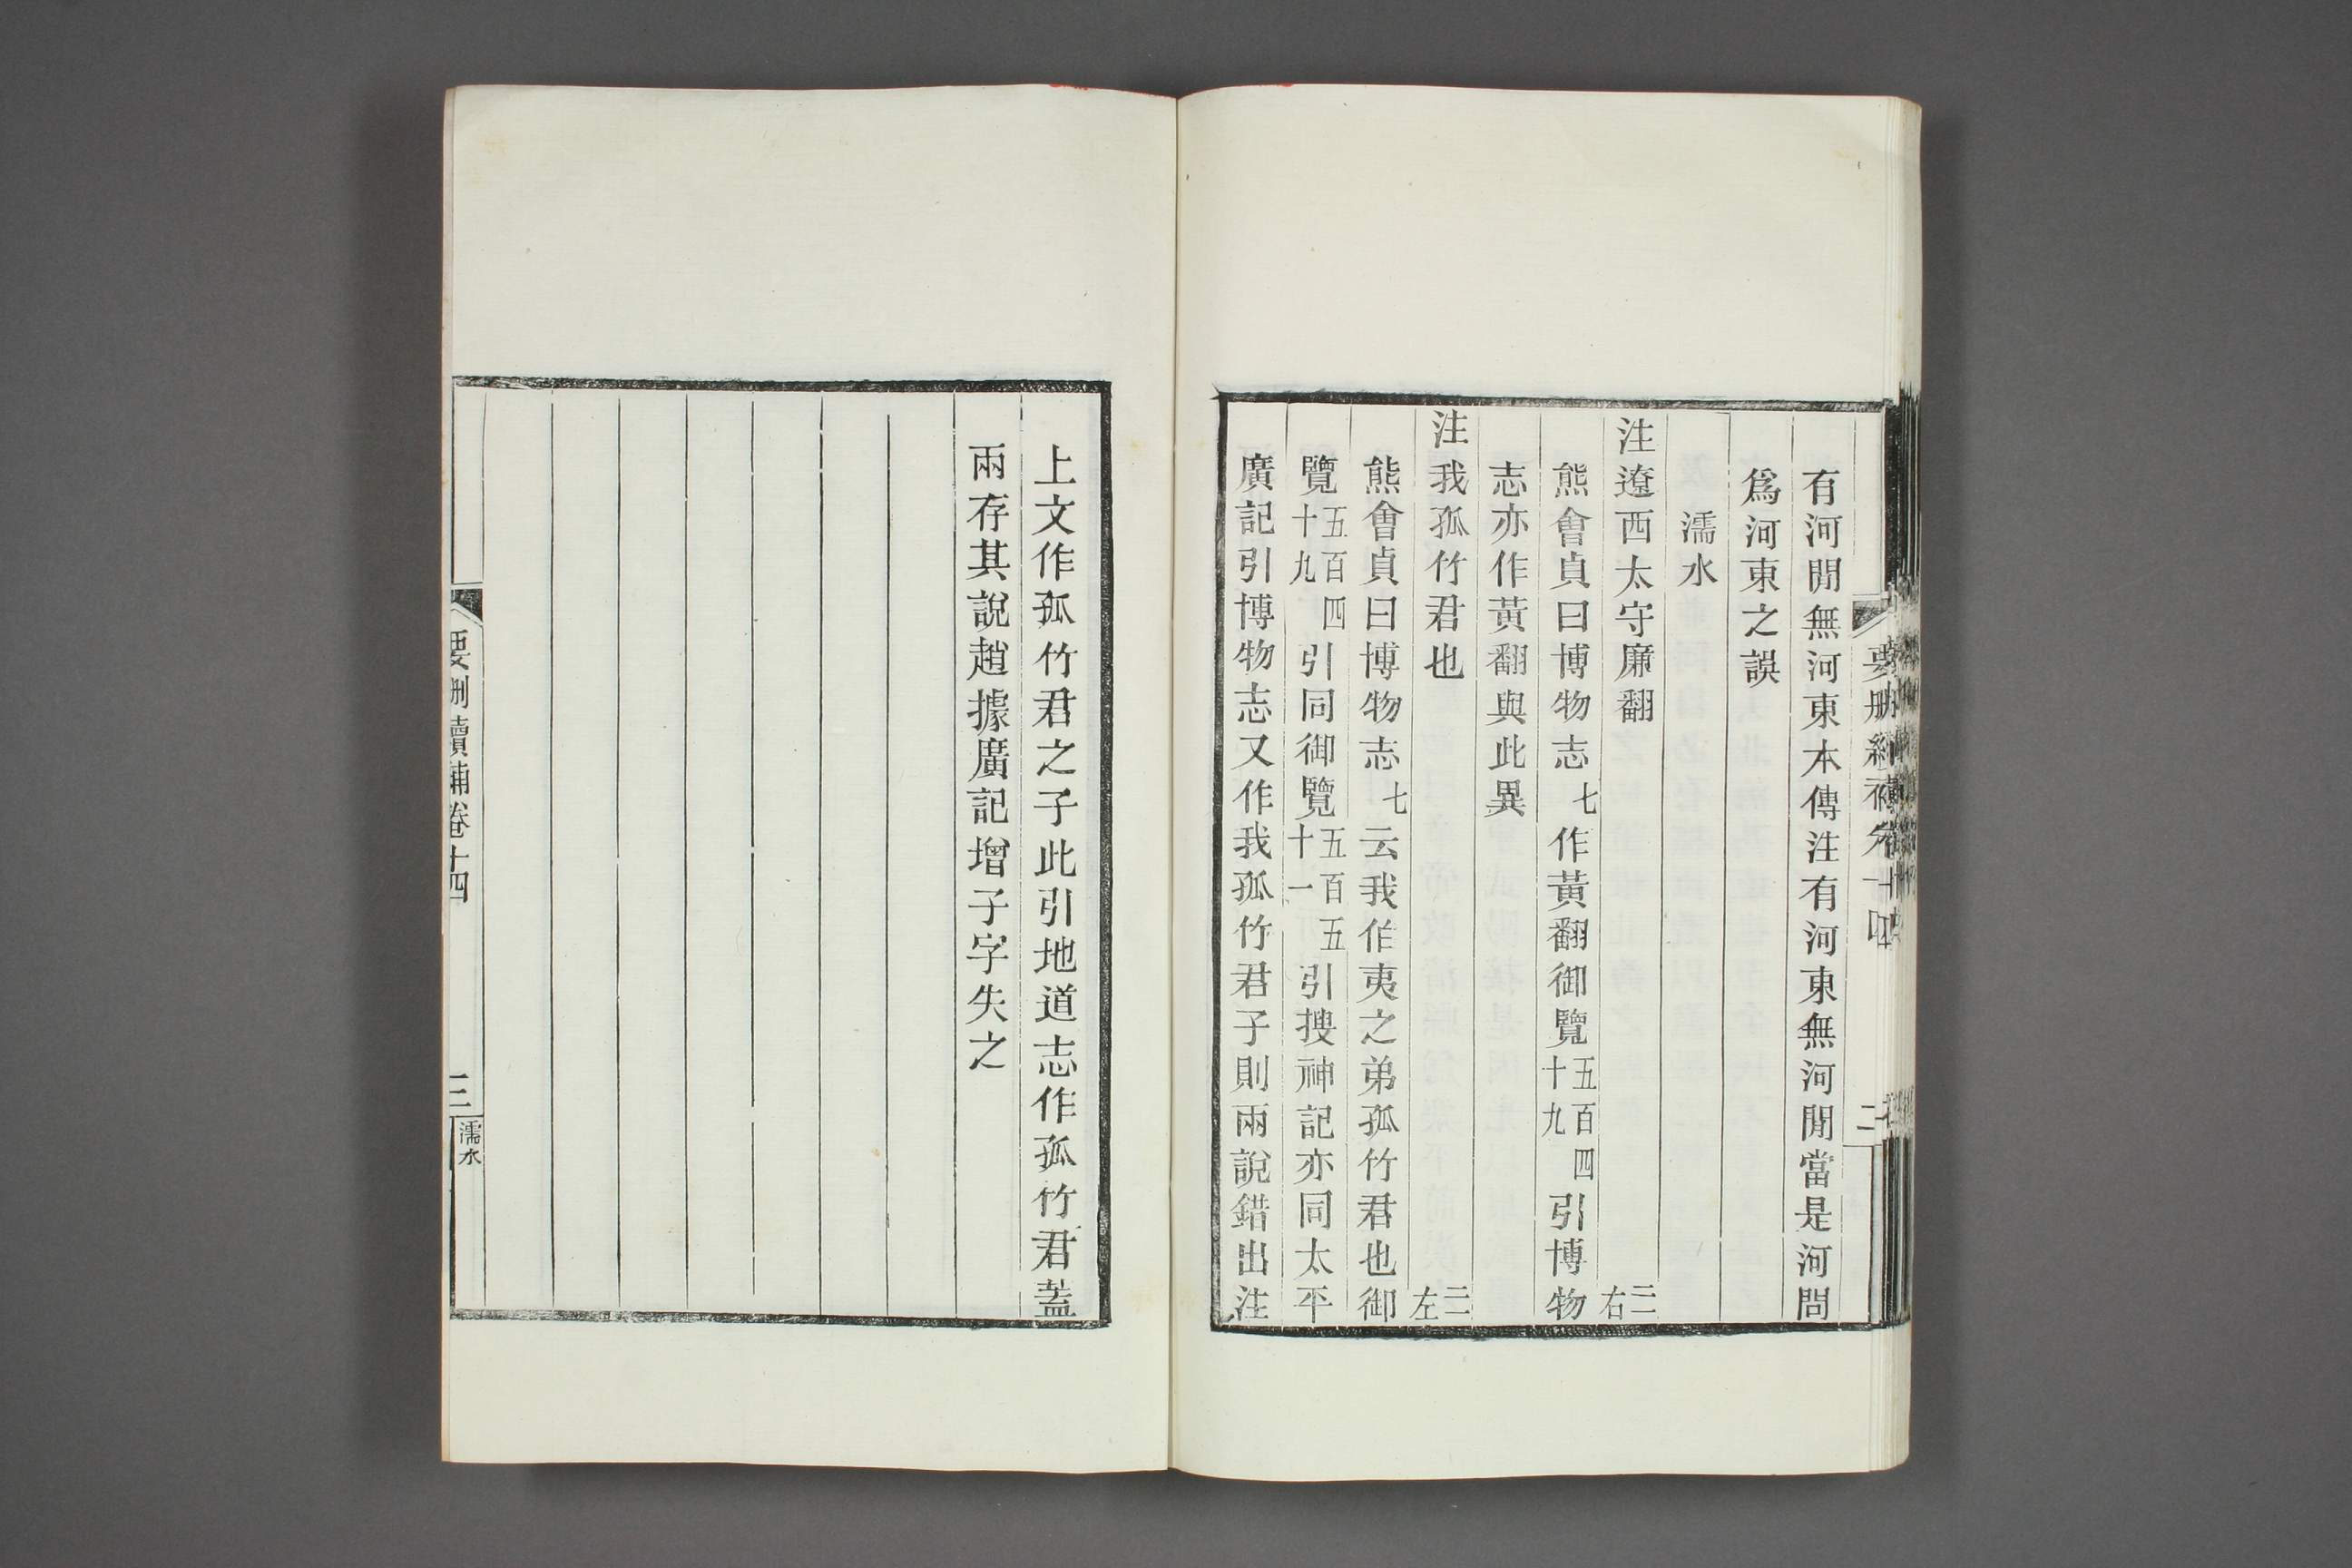 有河閒無河東本傳注有河東無河閒當是河閒
爲河東之誤
濡水
注遼西太守廉翻 三一右
熊會貞曰博物志七作黃翻御覽五百四十九引博物
志亦作黃翻與此異
注我孤竹君也 三一左
熊會貞曰博物志七云我伯夷之弟孤竹君也御
覽五百四十九引同御覽五百五十一引搜神記亦同太平
廣記引博物志又作我孤竹君子則兩說錯出注
要刪續補卷十四
二
上文作孤竹君之子此引地道志作孤竹君蓋
兩存其說趙據廣記增子字失之
要刪續補卷十四
三
濡水